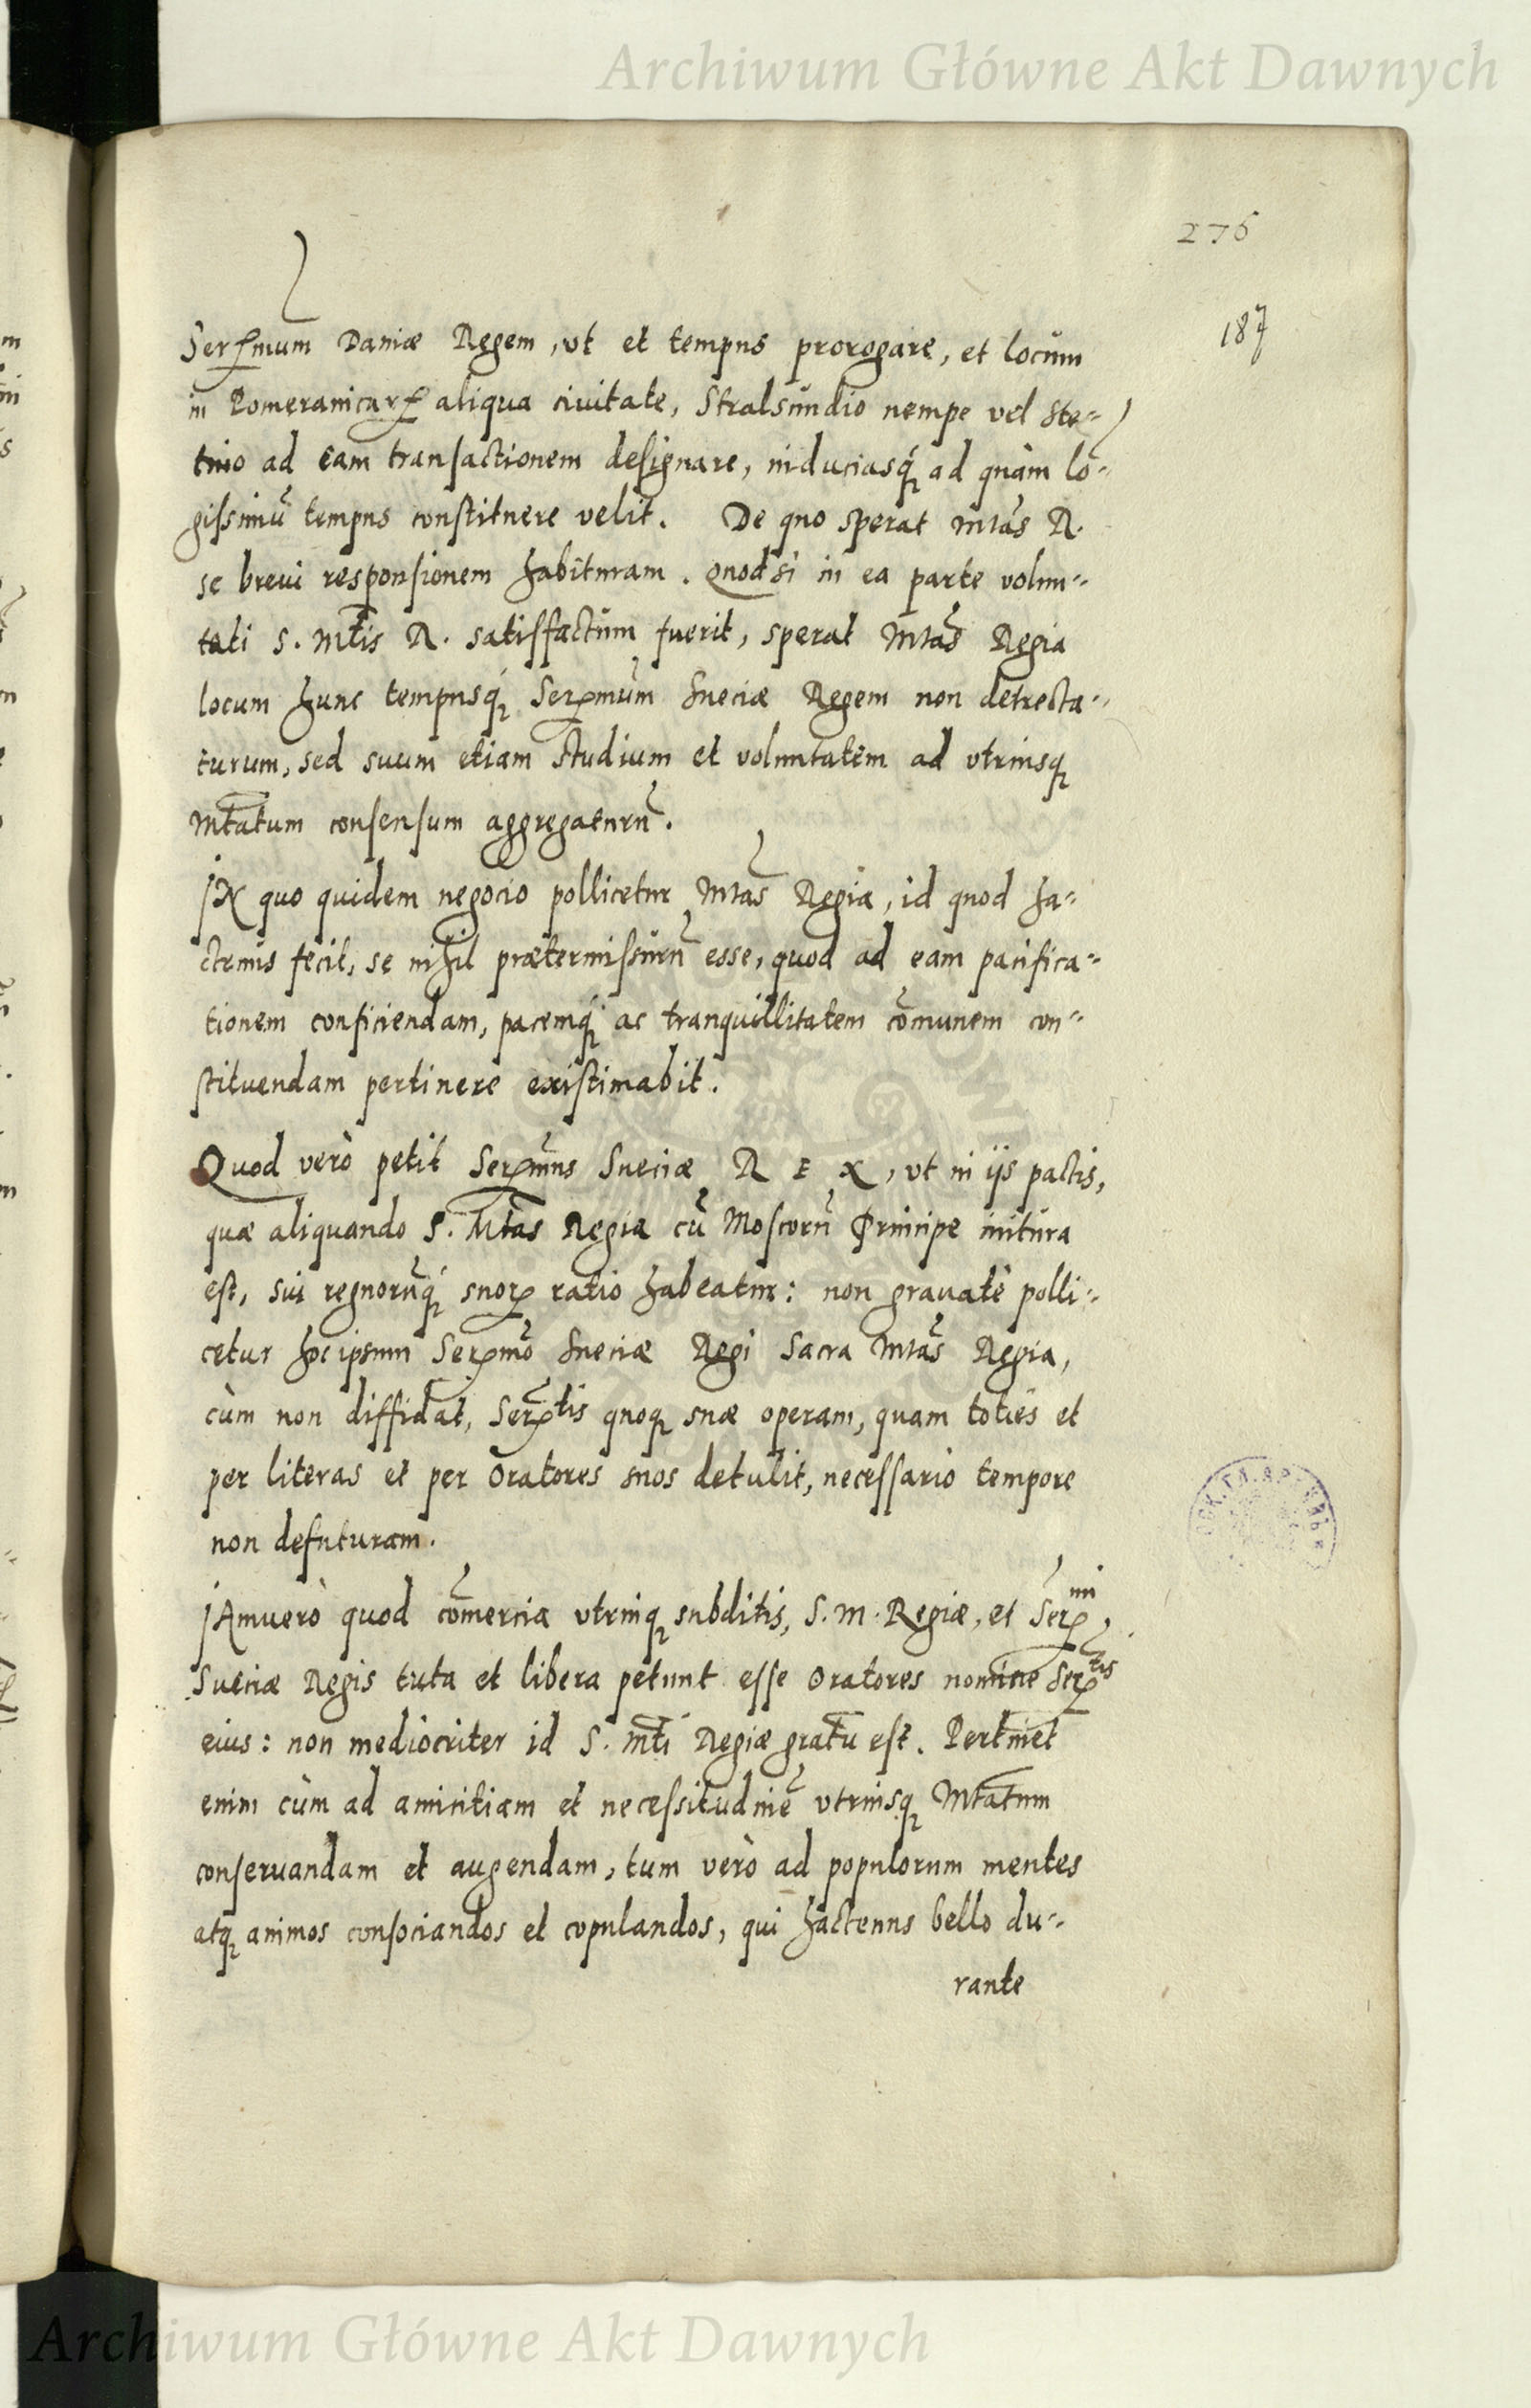 Archiwum Główne Akt Dawnych
276
187
Serꝝmum Daniæ Regem, vt et tempus prorogare, et locum
in Pomeranicarꝝ aliqua ciuitate, Stralsundio nempe vel Ste-
tino ad eam transactionem designare, induciasq́ꝫ ad quàm lõ-
gissimũ tempus constituere velit. De quo sperat Mtãs R.
se breui responsionem habituram. Quod si in ea parte volun-
tati S. Mt̃is R. satisfactum fuerit, sperat Mtãs Regia
locum hunc tempusq́ꝫ Serꝝmũm Sueciæ Regem non detrecta-
turum, sed suum etiam studium et voluntatem ad vtriusqꝫ
Mt̃atum consensum aggregaturũ.
IN quo quidem negocio pollicetur Mtãs Regia, id quod ha-
ctenus fecit, se nihil prætermissurũ esse, quod ad eam pacifica-
tionem conficiendam, pacemq́ꝫ ac tranquillitatem cõmunem con-
stituendam pertinere existimabit.
Quod verò petit Serꝝmũs Sueciæ R E X, vt in ijs pactis,
quæ aliquando S. Mtãs Regia cũ Moscorũ Principe initura
est, sui regnorũq́ꝫ suorꝝ ratio habeatur: non grauatè polli-
cetur hoc ipsum Serꝝmõ Sueciæ Regi Sacra Mtãs Regia,
cùm non diffidat, Serꝝ̃tis quoqꝫ suæ operam, quam toties et
per literas et per Oratores suos detulit, necessario tempore
non defuturam.
IAmuerò quod cõmercia vtrinqꝫ subditis, S. M. Regiæ, et Serꝝ̃mi
Sueciæ Regis tuta et libera petunt esse Oratores nomine Serꝝ̃tis
eius: non mediocriter id S. Mt̃i Regiæ gratũ est. Pertinet
enim cùm ad amicitiam et necessitudinẽ vtriusqꝫ Mt̃atum
conseruandam et augendam, tum verò ad populorum mentes
atqꝫ animos consociandos et copulandos, qui hactenus bello du-
rante
Archiwum Główne Akt Dawnych